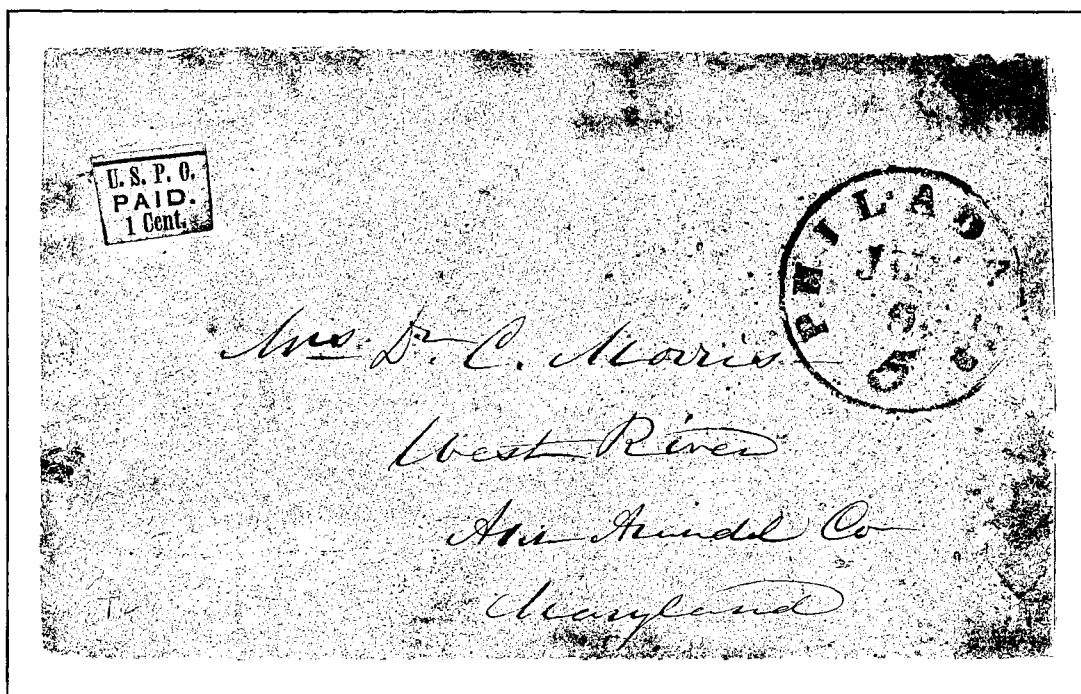 U. S. P. O.
PAID.
1 Cent.
PHILAD
9
5
Mrs. Dr. C. Morris
West River
Ann Arundel Co
Maryland